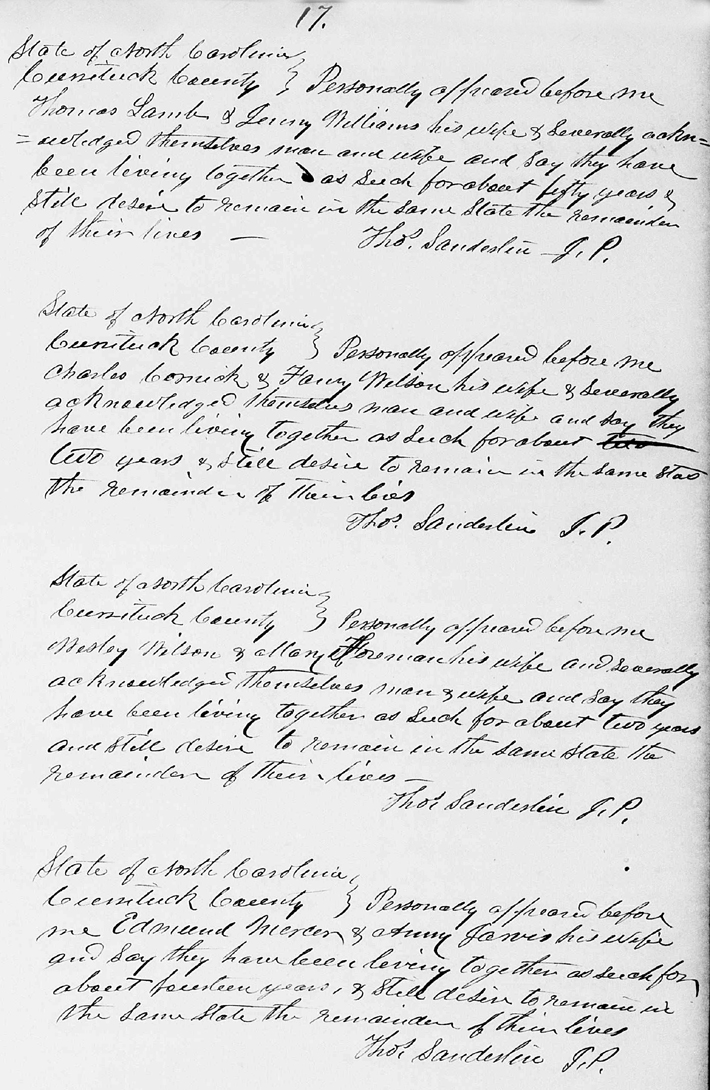 17.
State of North Carolina
Currituck County } Personally appeared before me
Thomas Lamb & Jenny Williams his wife & Severally ackn=
=owledged themselves man and wife and Say they have
been living together as Such for about fifty years &
Still desire to remain in the same State the remainder
of their lives — Thos. Sanderlin J.P.
State of North Carolina
Currituck County } Personally appeared before me
Charles Cornick & Fanny Wilson his wife & Severally
acknowledged themselves man and wife and Say they
have been living together as Such for about two
two years & Still desire to remain in the same State
the remainder of their lives
Thos. Sanderlin J.P.
State of North Carolina
Currituck County } Personally appeared before me
Wesley Wilson & Mary Foreman his wife and Severally
acknowledged themselves man & wife and Say they
have been living together as Such for about two years
and Still desire to remain in the Same State the
remainder of their lives —
Thos. Sanderlin J.P.
State of North Carolina
Currituck County } Personally appeared before
me Edmund Mercer & Anny Jarvis his wife
and Say they have been living together as such for
about fourteen years, & Still desire to remain in
the Same State the remainder of their lives
Thos. Sanderlin J.P.